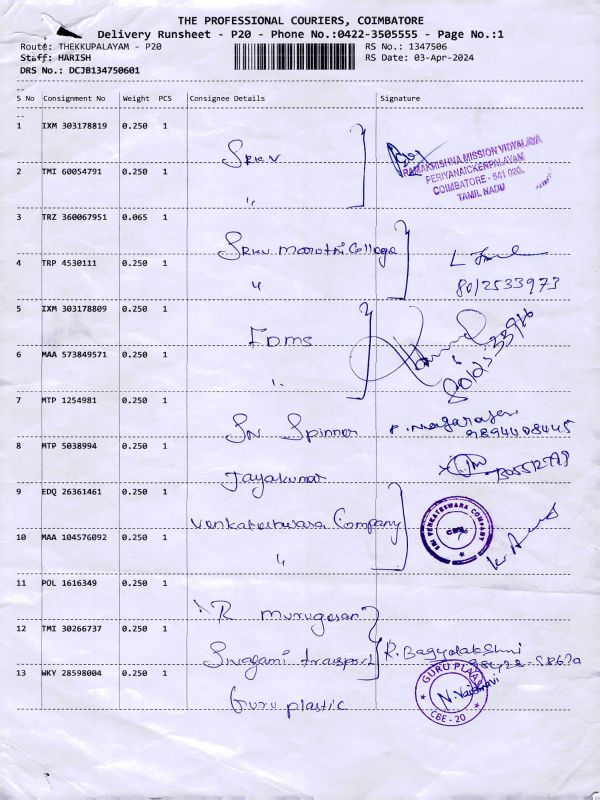 THE PROFESSIONAL COURIERS, COIMBATORE
Delivery Runsheet - P20 - Phone No.:0422-3505555 - Page No.:1
Route: THEKKUPALAYAM - P20 RS No.: 1347506
Staff: HARISH RS Date: 03-Apr-2024
DRS No.: DCJB134750601
S No Consignment No Weight PCS Consignee Details Signature
1 IXM 303178819 0.250 1
SRKV
RAMAKRISHNA MISSION VIDYALAYA
PERIYANAICKENPALAYAM
COIMBATORE - 641 020.
TAMIL NADU
2 TMI 60054791 0.250 1
"
3 TRZ 360067951 0.065 1
SRKV Maruthi College
4 TRP 4530111 0.250 1
"
8012533973
5 IXM 303178809 0.250 1
6 MAA 573849571 0.250 1
"
7 MTP 1254981 0.250 1
Spinner
P. Nagarajan
9894408445
8 MTP 5038994 0.250 1
Jayakumar
9 EDQ 26361461 0.250 1
Venkateshwara Company
SRI VENKATESHWARA COMPANY
CBE
10 MAA 104576092 0.250 1
"
11 POL 1616349 0.250 1
R murugesan
12 TMI 30266737 0.250 1
Sivagami transport
R. Bagyalakshmi
13 WKY 28598004 0.250 1
Guru plastic
GURU PLAS
N. Vaishnavi
CBE - 20